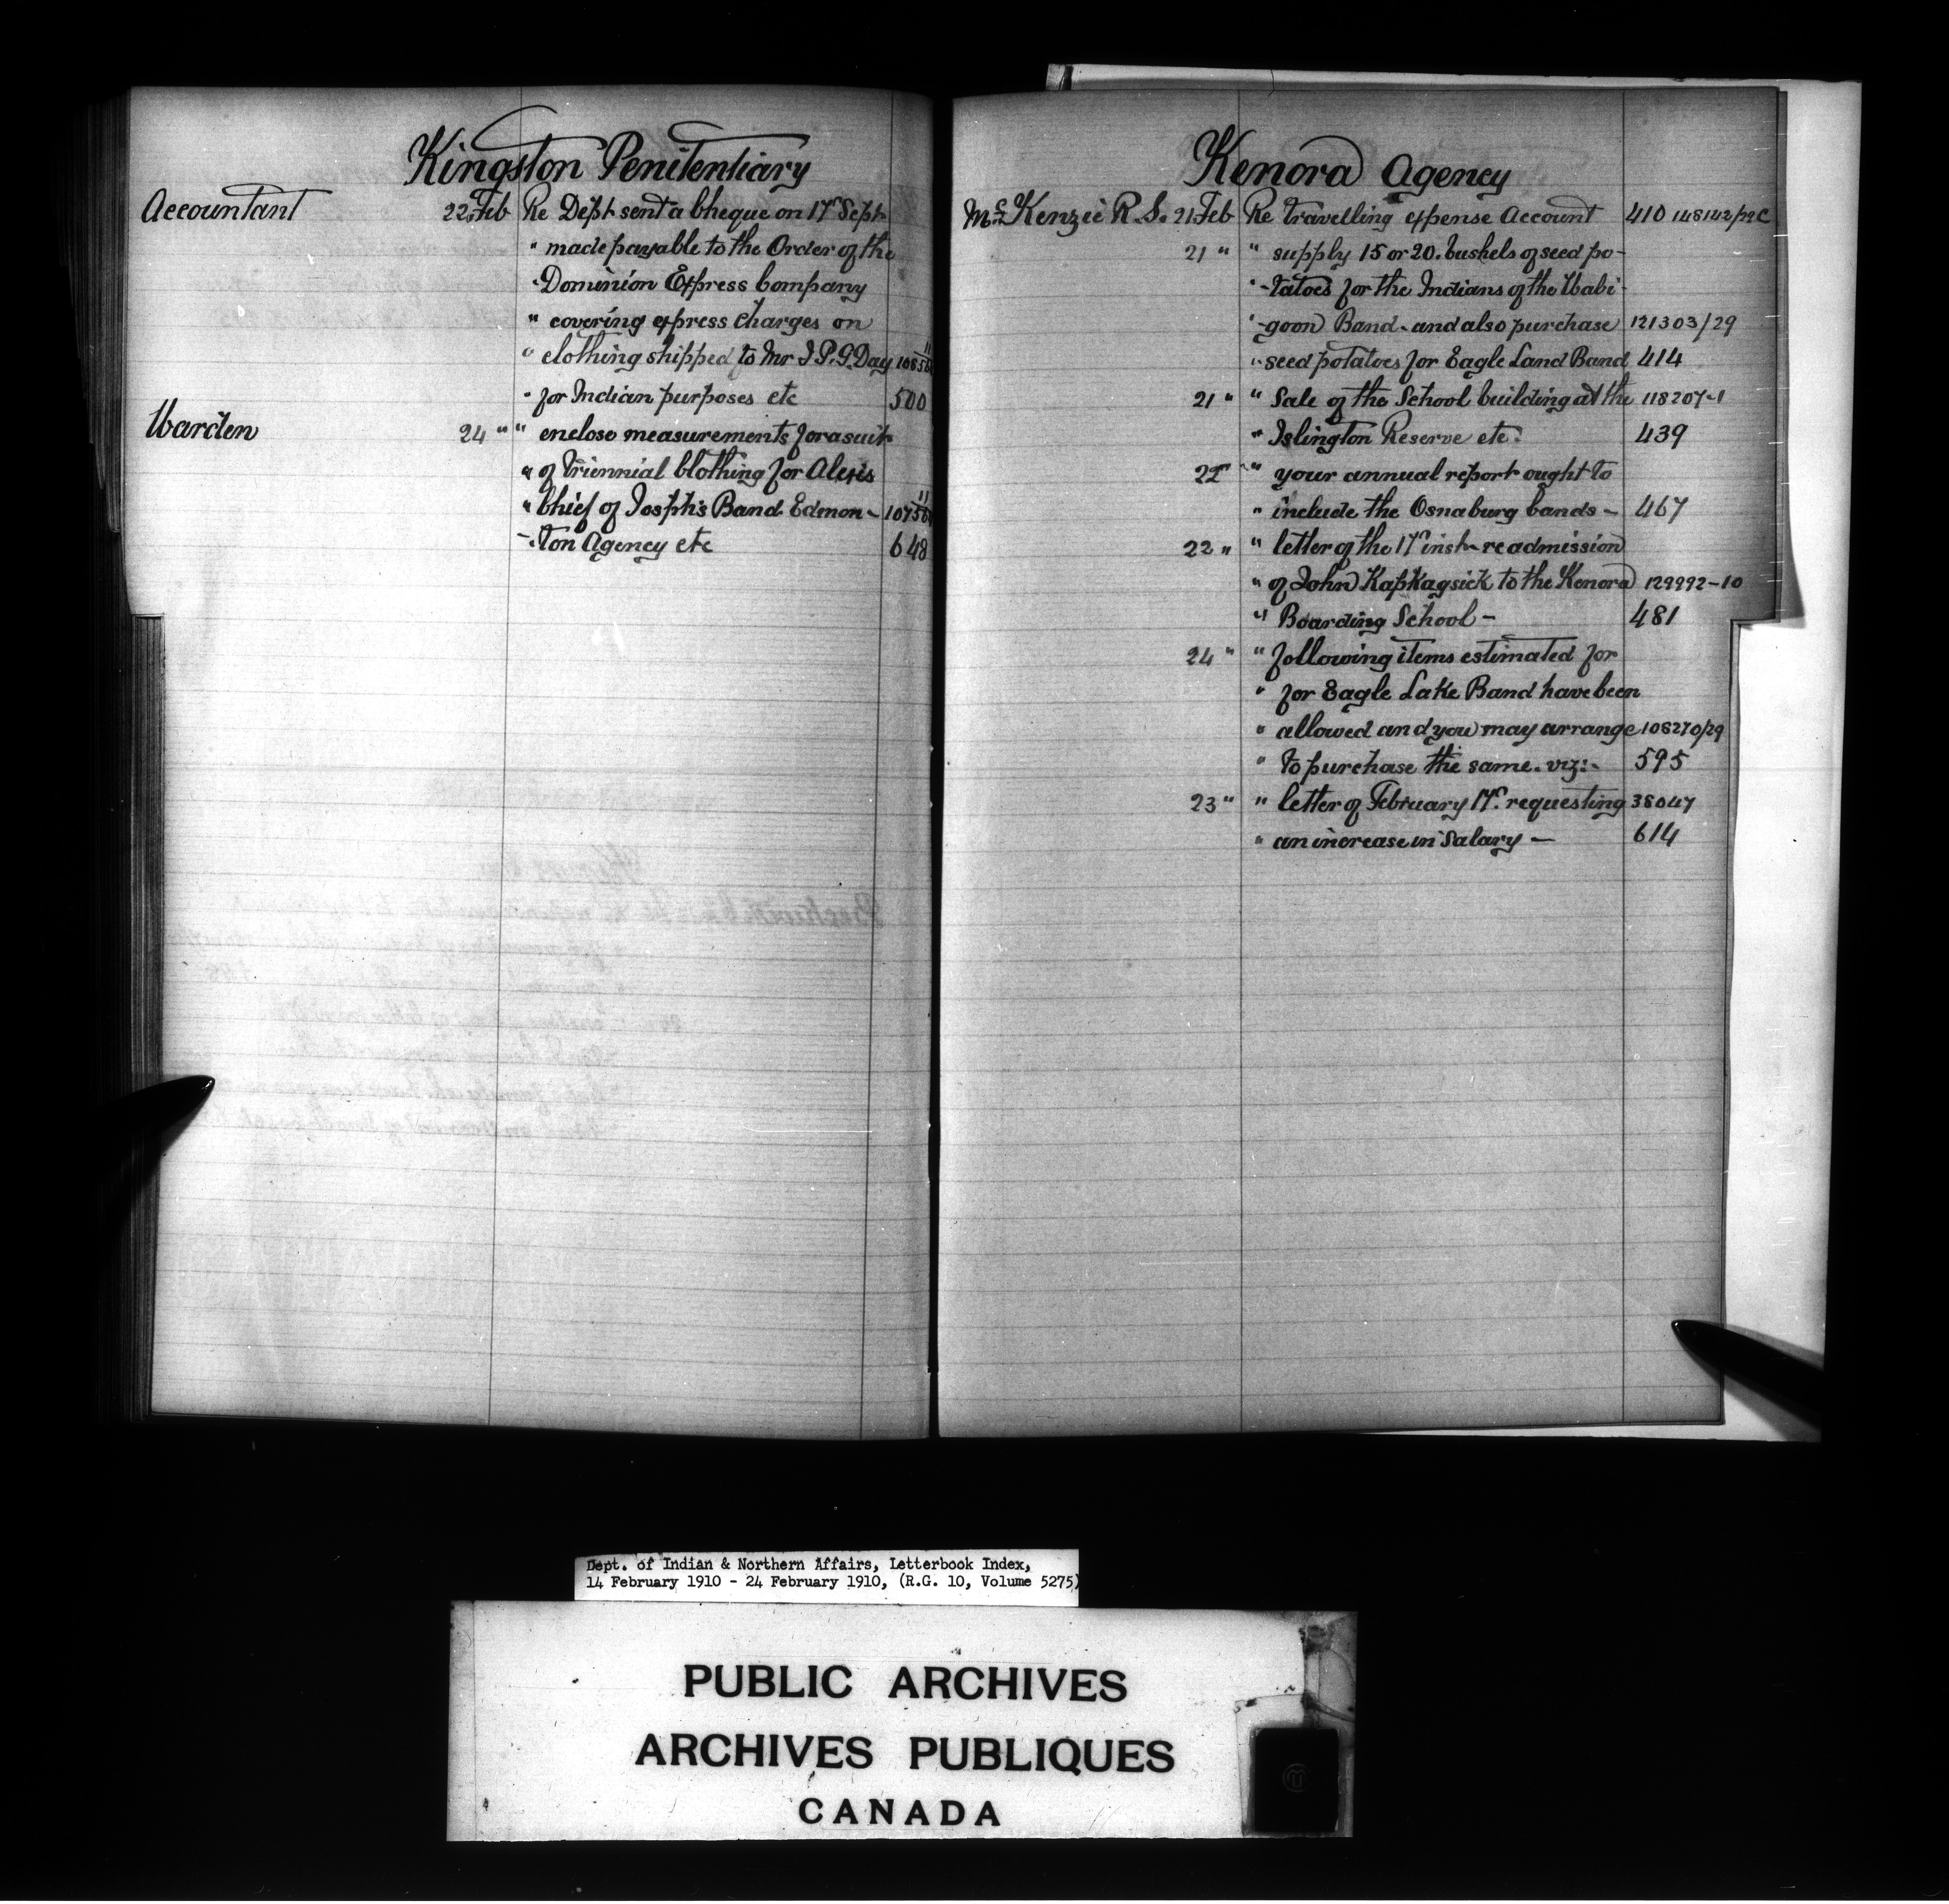 Kingston Penitentiary
Accountant 22 Feb Re Dept sent a Cheque on 17th Sept
" made payable to the Order of the
" Dominion Express Company
" covering express charges on
" clothing shipped to Mr I. P. G. Day
" for Indian purposes etc 500
Warden 24 " " enclose measurements for a suit
" of Triennial Clothing for Alexis
" Chief of Josph's Band Edmon-
-ton Agency etc 648
Kenora Agency
McKenzie R. S. 21 Feb Re travelling expense Account 410 148142/29C
21 " " supply 15 or 20 bushels of seed po-
" -tatoes for the Indians of the Wabi-
" -goon Band - and also purchase 121303/29
" seed potatoes for Eagle Land Band 414
21 " " Sale of the School building at the 118207-1
" Islington Reserve etc. 439
22 " " your annual report ought to
" include the Osnaburg bands - 467
22 " " letter of the 17th inst - re admission
" of John Kapkagsick to the Kenora 129992-10
" Boarding School - 481
24 " " following items estimated for
" for Eagle Lake Band have been
" allowed and you may arrange 108270/29
" to purchase the same. viz:- 595
23 " " letter of February 17th requesting 38047
" an increase in Salary - 614
Dept. of Indian & Northern Affairs, Letterbook Index,
14 February 1910 - 24 February 1910, (R.G. 10, Volume 5275)
PUBLIC ARCHIVES
ARCHIVES PUBLIQUES
CANADA